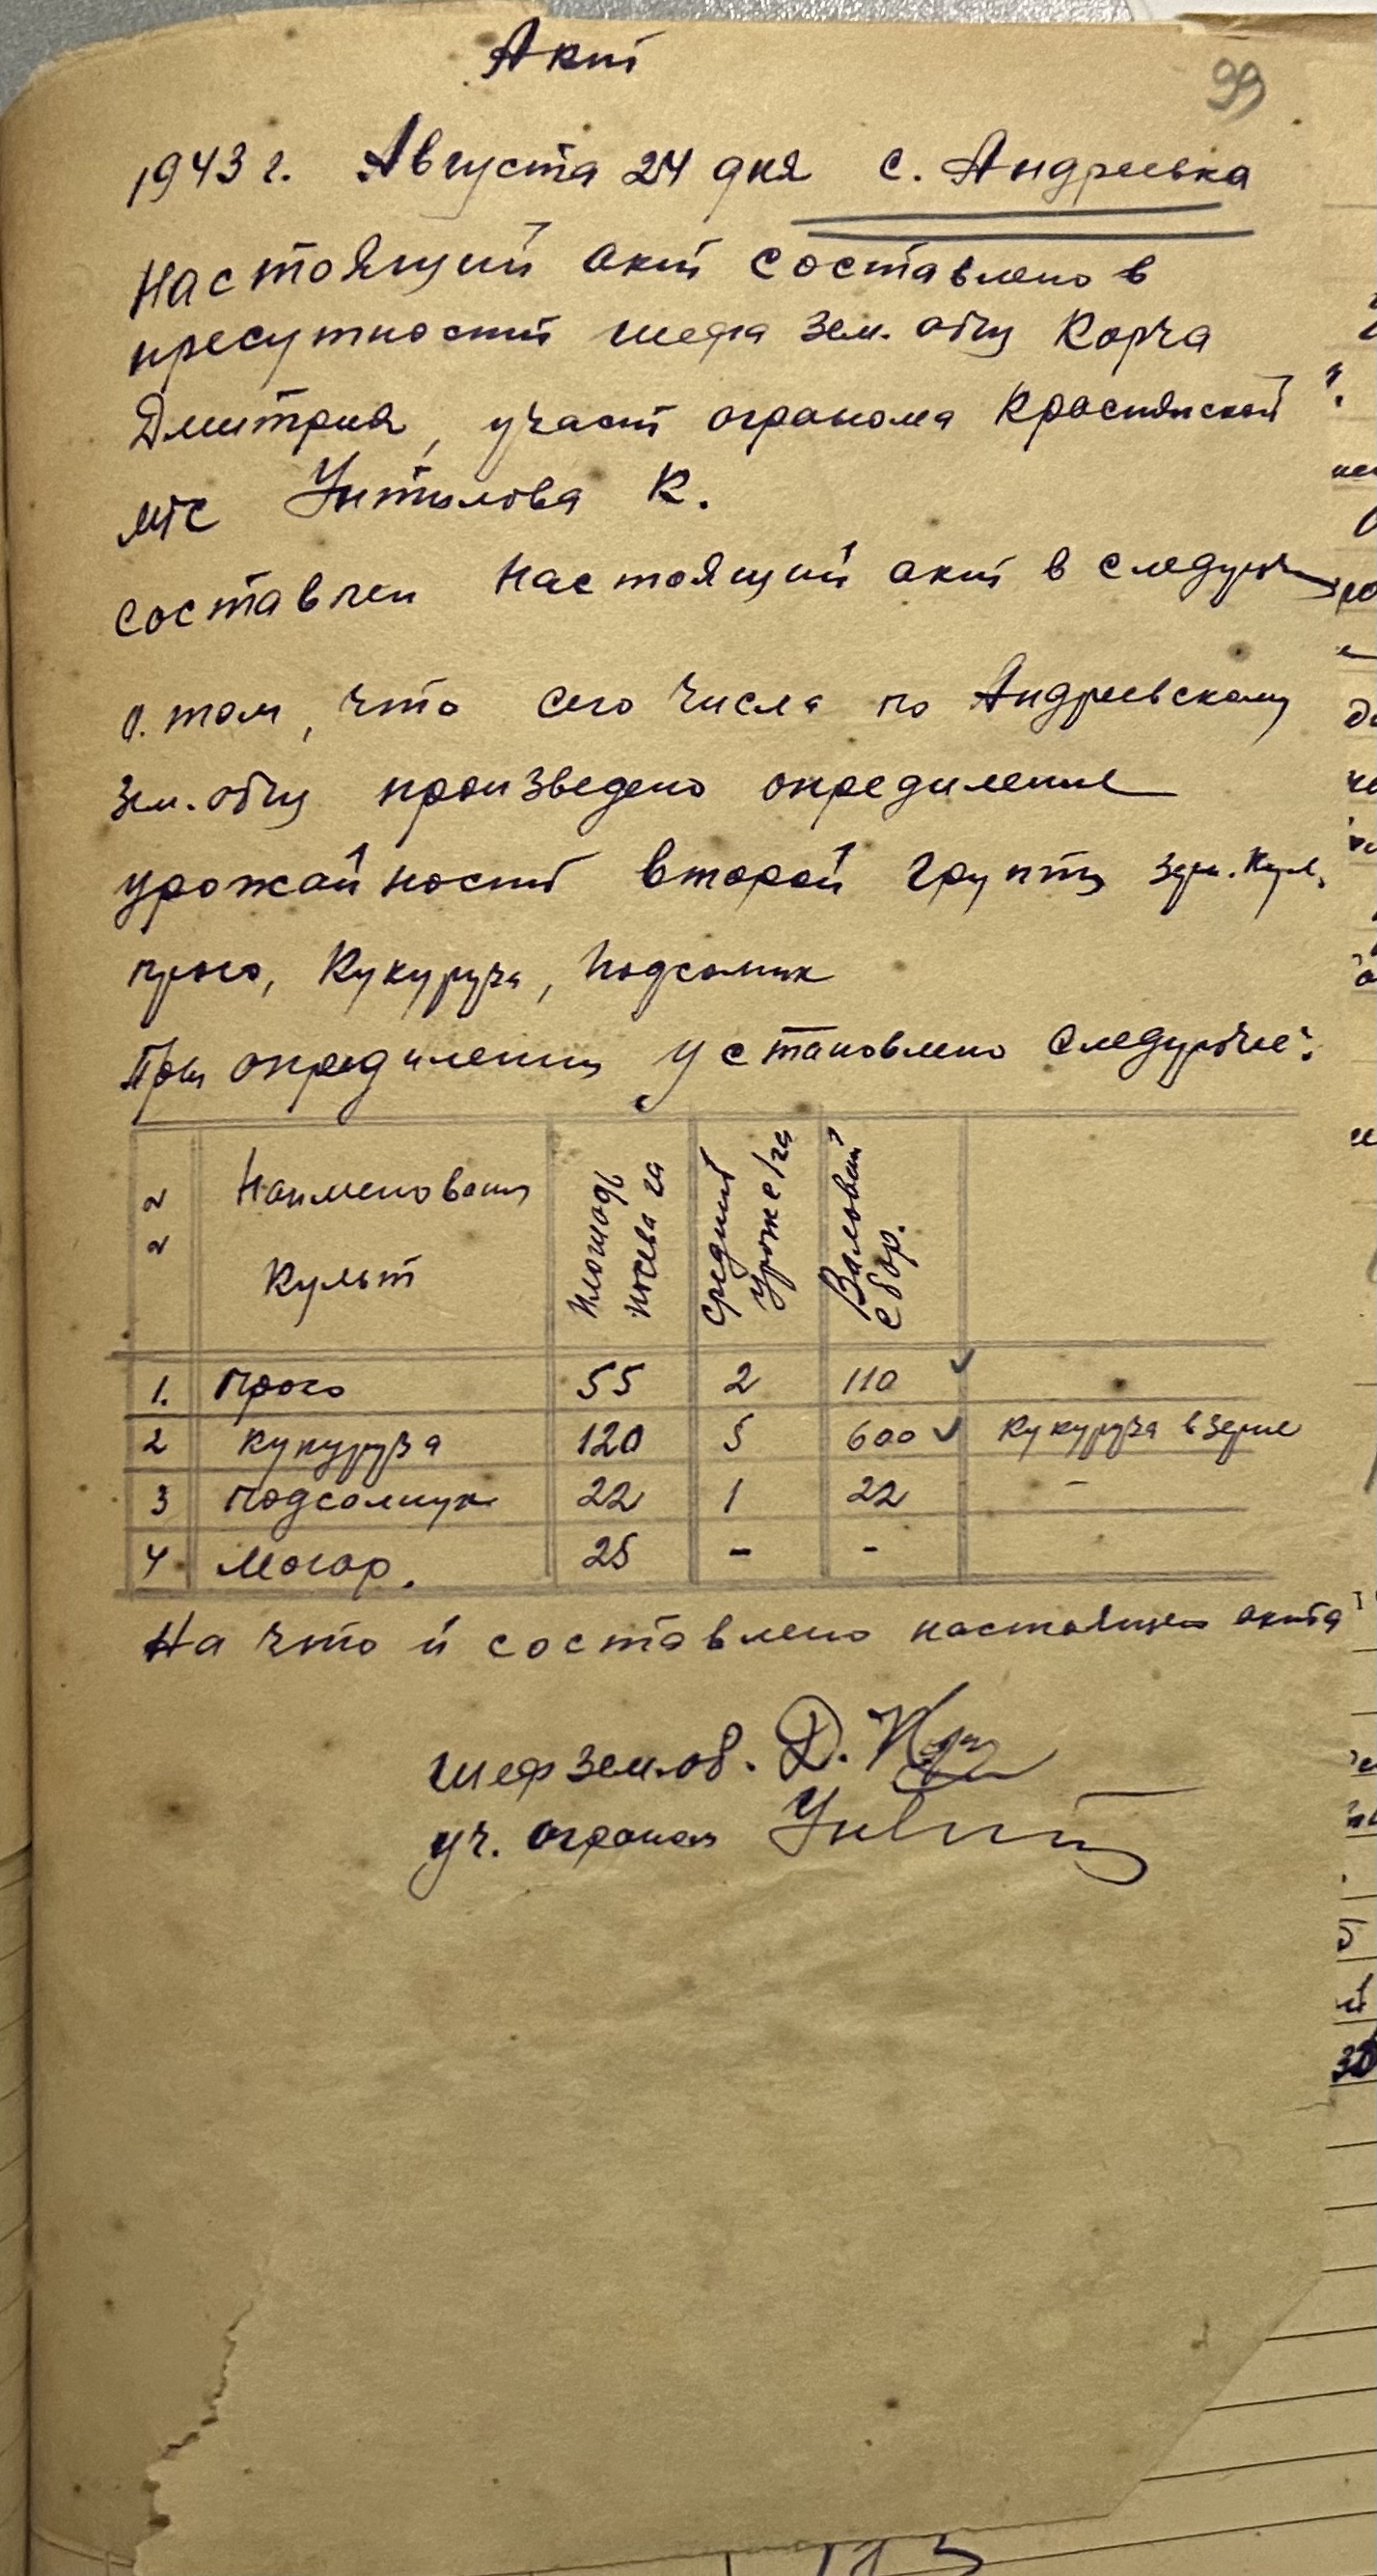 Акт
99
1943 г. Августа 24 дня с. Андреевка
Настоящий акт составлено в
пресутности шефа Зем. общ Корча
Дмитрия, участ агронома Краснянской
мтс К.
составлен настоящий акт в следующ
о том, что сего числа по Андреевскому
Зем. общ произведено определение
урожайности второй группы зерн. Кул.
просо, Кукуруза, Подсолник
При определении установлено следующие:
Наименования Культ
Площадь посева га
Средний урож с/га
Валовый сбор.
1. Просо 55 2 110 ✓
2 Кукуруза 120 5 600 ✓ Кукуруза в зерне
3 Подсолнух 22 1 22 -
4 Могар. 25 - -
На что и составлено настоящего акта
шеф земоб. Д.
уч. агроном